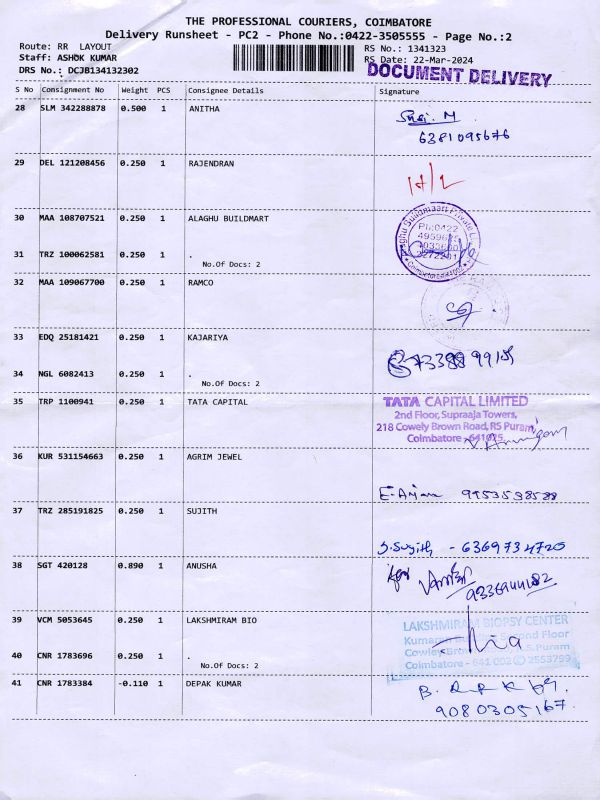 THE PROFESSIONAL COURIERS, COIMBATORE
Delivery Runsheet - PC2 - Phone No.:0422-3505555 - Page No.:2
Route: RR LAYOUT RS No.: 1341323
Staff: ASHOK KUMAR RS Date: 22-Mar-2024
DRS No.: DCJB134132302
DOCUMENT DELIVERY
S No Consignment No Weight PCS Consignee Details Signature
28 SLM 342288878 0.500 1 ANITHA
6381095676
29 DEL 121208456 0.250 1 RAJENDRAN
30 MAA 108707521 0.250 1 ALAGHU BUILDMART
31 TRZ 100062581 0.250 1 .
No.Of Docs: 2
32 MAA 109067700 0.250 1 RAMCO
33 EDQ 25181421 0.250 1 KAJARIYA
34 NGL 6082413 0.250 1 .
No.Of Docs: 2
35 TRP 1100941 0.250 1 TATA CAPITAL
TATA CAPITAL LIMITED
2nd Floor, Supraaja Towers,
218 Cowely Brown Road, RS Puram
Coimbatore - 641025
36 KUR 531154663 0.250 1 AGRIM JEWEL
37 TRZ 285191825 0.250 1 SUJITH
J.Sujith - 6369734720
38 SGT 420128 0.890 1 ANUSHA
39 VCM 5053645 0.250 1 LAKSHMIRAM BIO
LAKSHMIRAM BIOPSY CENTER
Second Floor
R.S.Puram
Coimbatore - 641 002 2553799
40 CNR 1783696 0.250 1 .
No.Of Docs: 2
41 CNR 1783384 -0.110 1 DEPAK KUMAR
9080305167.